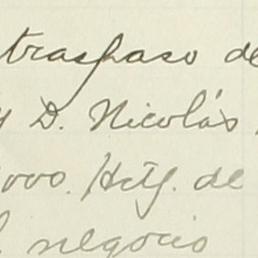 traspaso de
y D. Nicolás
000. Htg. de
l negocio